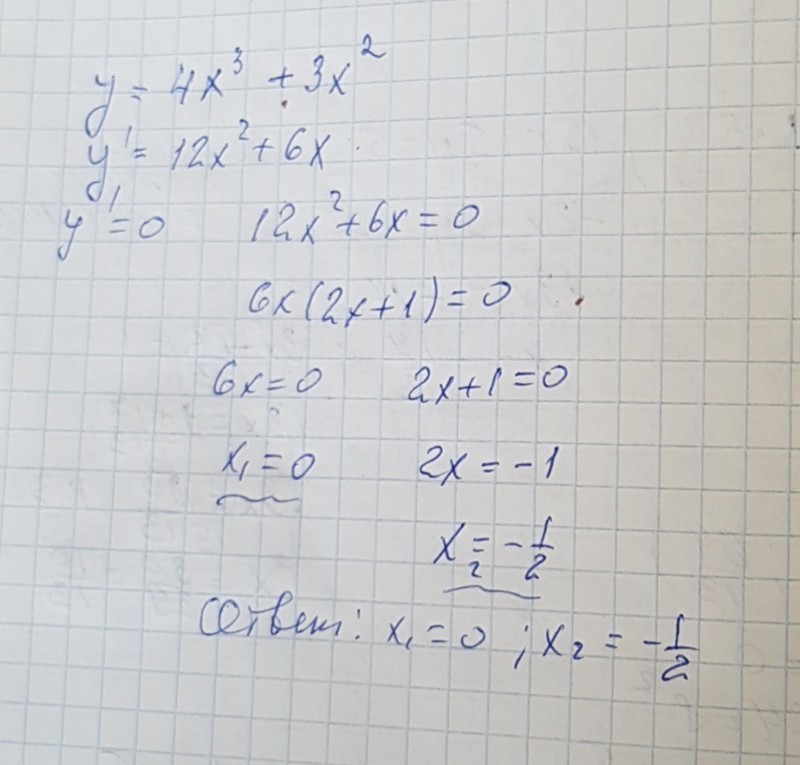 y = 4x³ + 3x²
y' = 12x² + 6x
y' = 0 12x² + 6x = 0
6x(2x+1) = 0
6x = 0 2x+1 = 0
x₁ = 0 2x = -1
x₂ = -1/2
Ответ: x₁ = 0 ; x₂ = -1/2